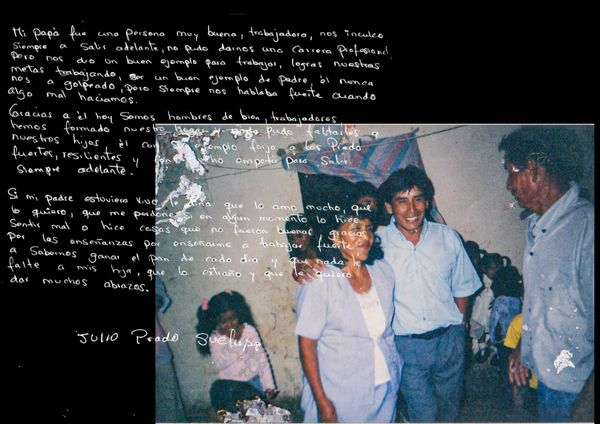 Mi papá fue una persona muy buena, trabajadora, nos inculco
siempre a salir adelante, no pudo darnos una carrera profesional
pero nos dio un buen ejemplo para trabajar, lograr nuestras
metas trabajando, por un buen ejemplo de padre, él nunca
nos a golpeado, pero siempre nos hablaba fuerte cuando
algo mal haciamos.
Gracias a él hoy somos hombres de bien, trabajadores
hemos formado nuestro hogar pudo faltarles a
nuestros hijos él con ejemplo forjo a los Prado
fuertes, resilientes y con mucho para salir
siempre adelante.
Si mi padre estuviera vivo le diria que lo amo mucho, que
lo quiero, que me perdone si en algun momento lo hice
sentir mal o hice cosas que no fueron buenas, gracias
por las enseñanzas por enseñarme a trabajar fuerte
a sabernos ganar el pan de cada dia y que nada le
falte a mis hijo, que lo extraño y que le quiero
dar muchos abrazos.
Julio Prado Suelupe